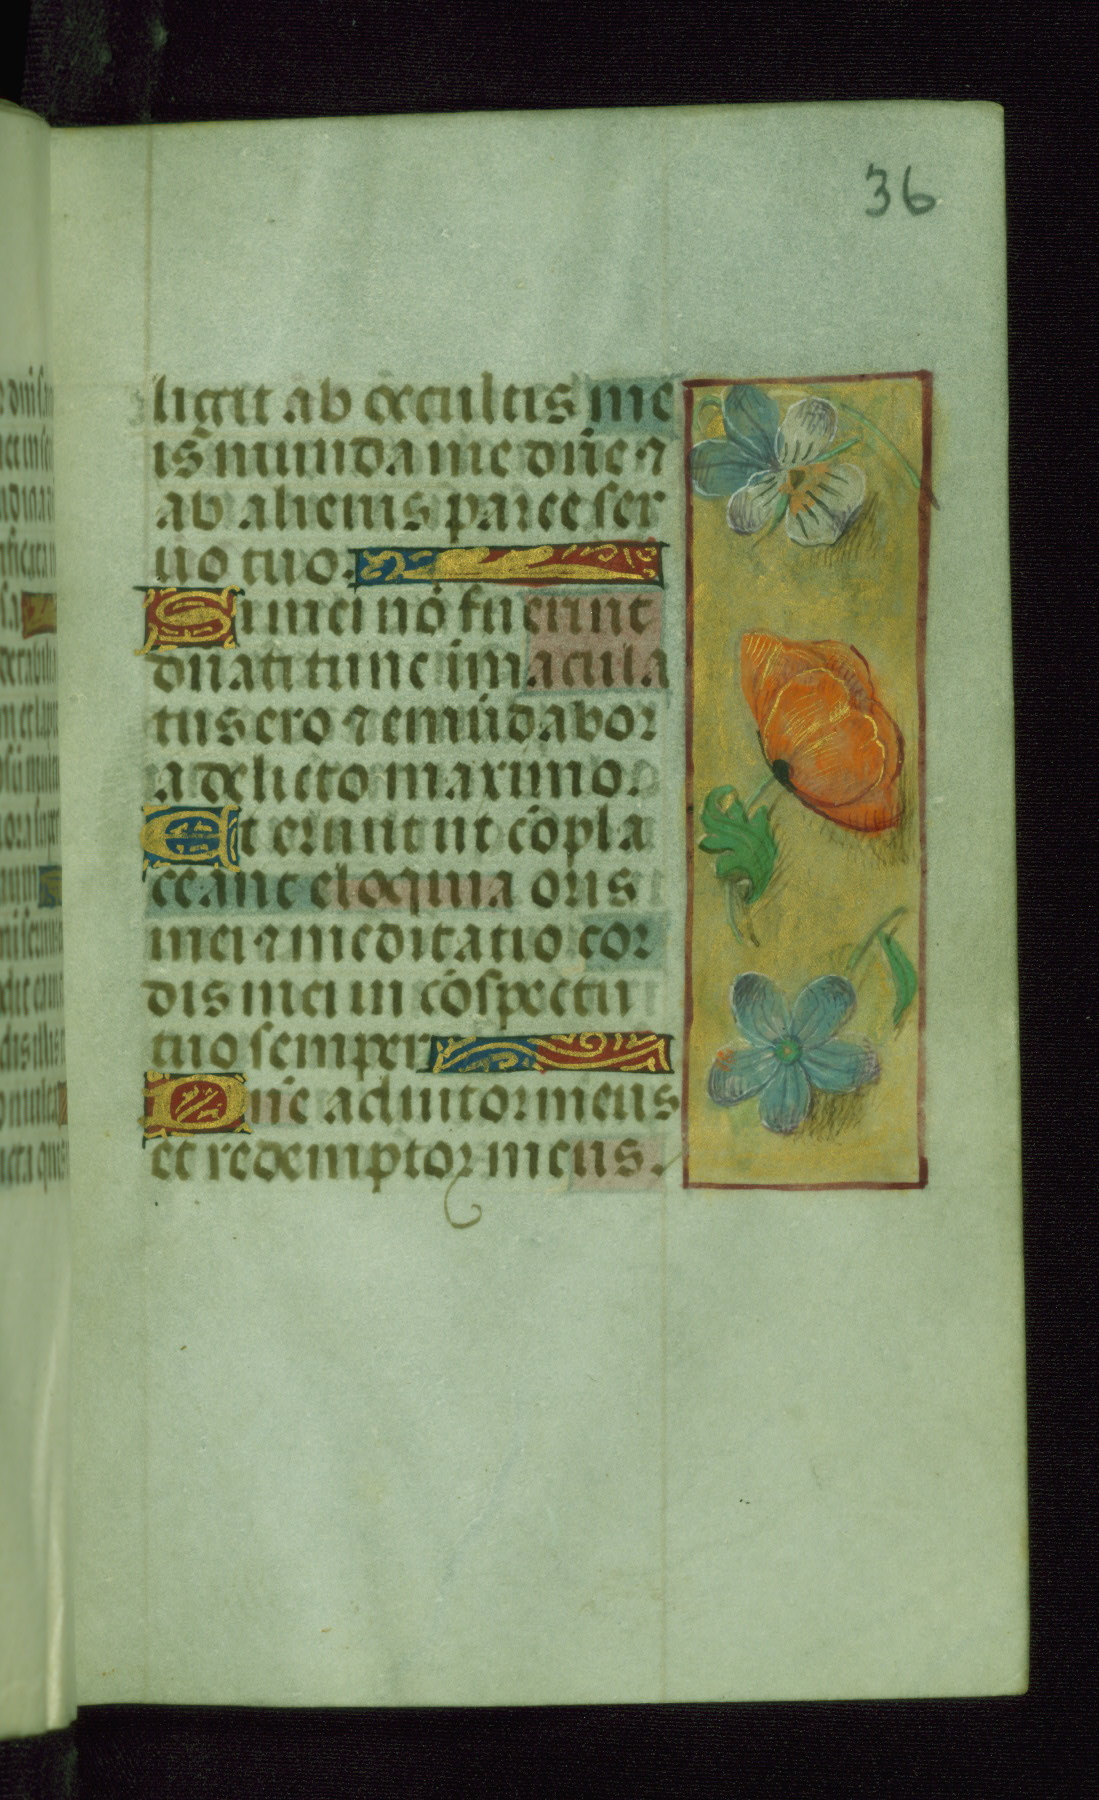 36
ligit ab occultis me
is munda me dñe ⁊
ab alienis parce ser
uo tuo.
Si mei nõ fuerint
dnati tunc ĩmacula
tus ero ⁊ emũdabor
a delicto maximo.
Et erunt ut cõpla
ceant eloquia oris
mei ⁊ meditatio cor
dis mei in cõspectu
tuo semper
Dñe adiutor meus
et redemptor meus.